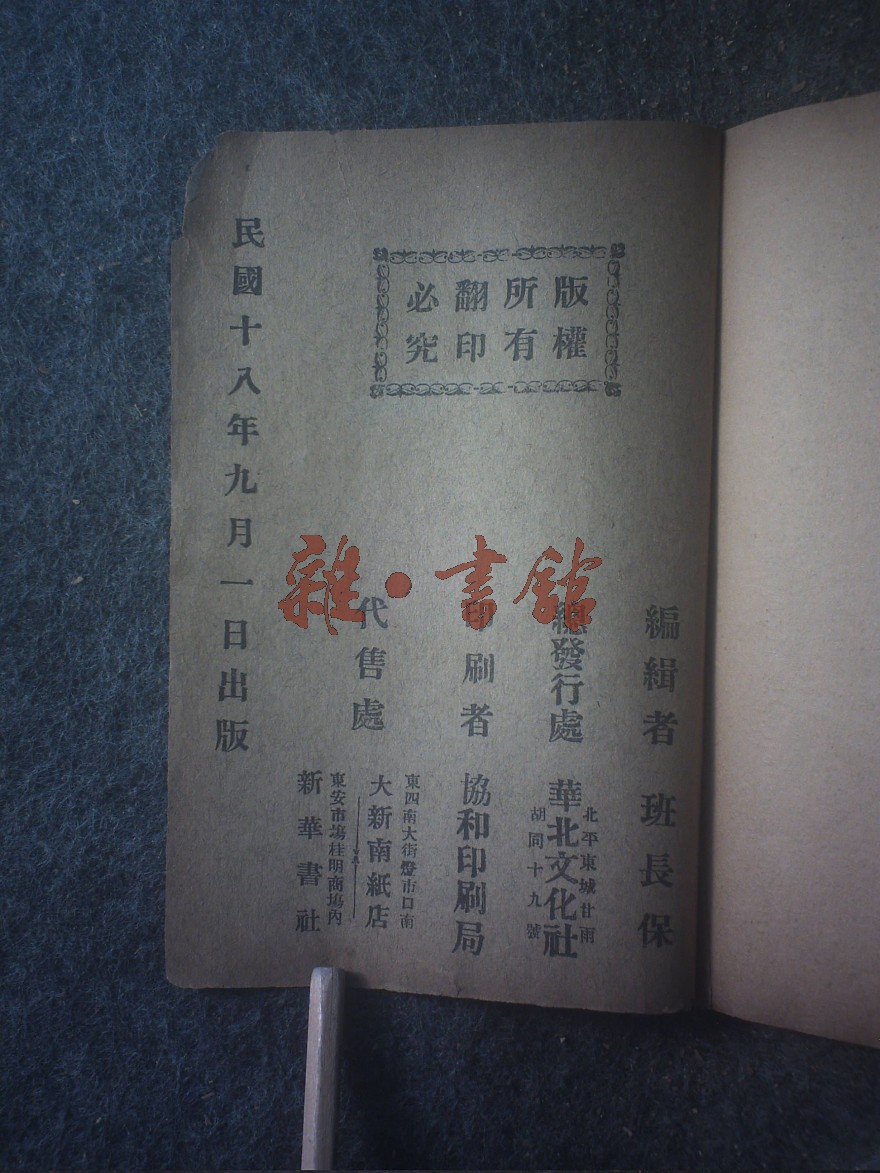 版權
所有
翻印
必究
編輯者 班長保
總發行處 華北文化社
北平東城甘雨
胡同十九號
印刷者 協和印刷局
代售處
東四南大街燈市口南
大新南紙店
東安市場桂明商場內
新華書社
民國十八年九月一日出版
雜·書館